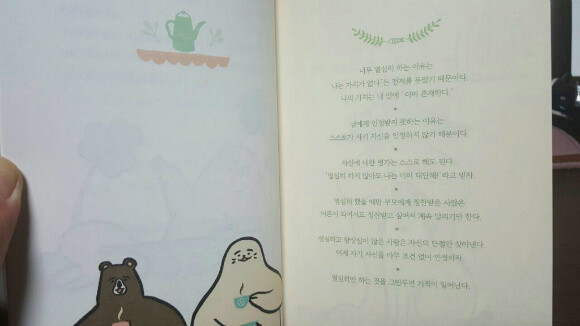 너무 열심히 하는 이유는
'나는 가치가 없다'는 전제를 두었기 때문이다.
나의 가치는 내 안에 '이미 존재한다.'
남에게 인정받지 못하는 이유는
스스로가 자기 자신을 인정하지 않기 때문이다.
자신에 대한 평가는 스스로 해도 된다.
'열심히 하지 않아도 나는 이미 대단해!'라고 믿자.
열심히 했을 때만 부모에게 칭찬받은 사람은
어른이 되어서도 칭찬받고 싶어서 계속 달리기만 한다.
성실하고 향상심이 많은 사람은 자신의 단점만 찾아낸다.
이제 자기 자신을 아무 조건 없이 인정하자.
열심히만 하는 것을 그만두면 기적이 일어난다.